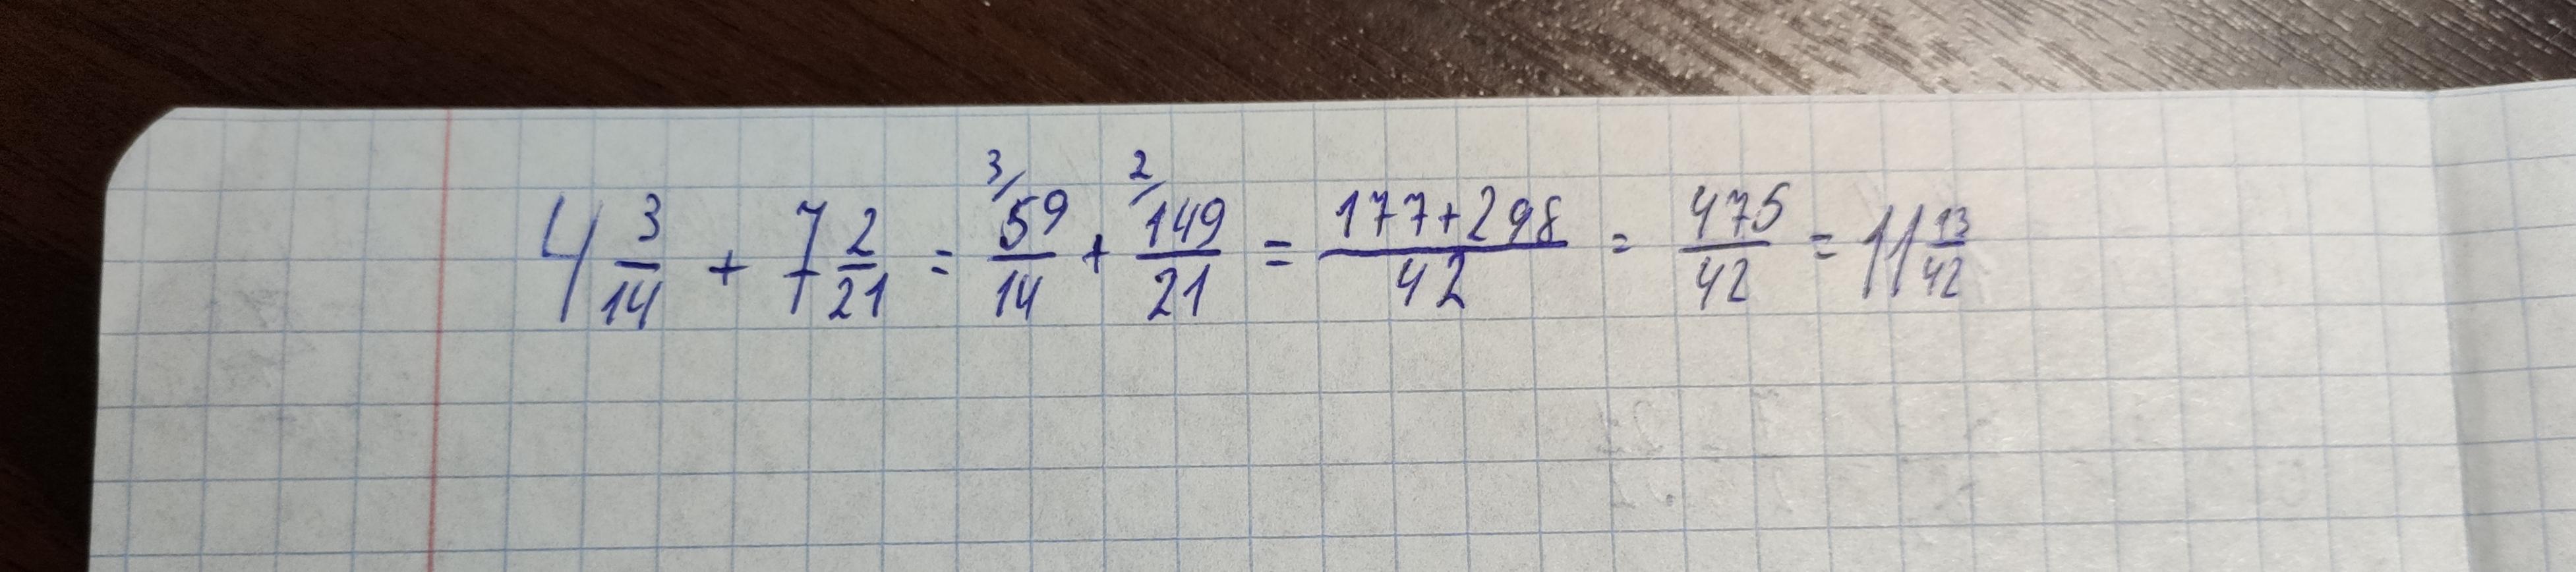 4 3/14 + 7 2/21 = 3/ 59/14 + 2/ 149/21 = 177+298/42 = 475/42 = 11 13/42